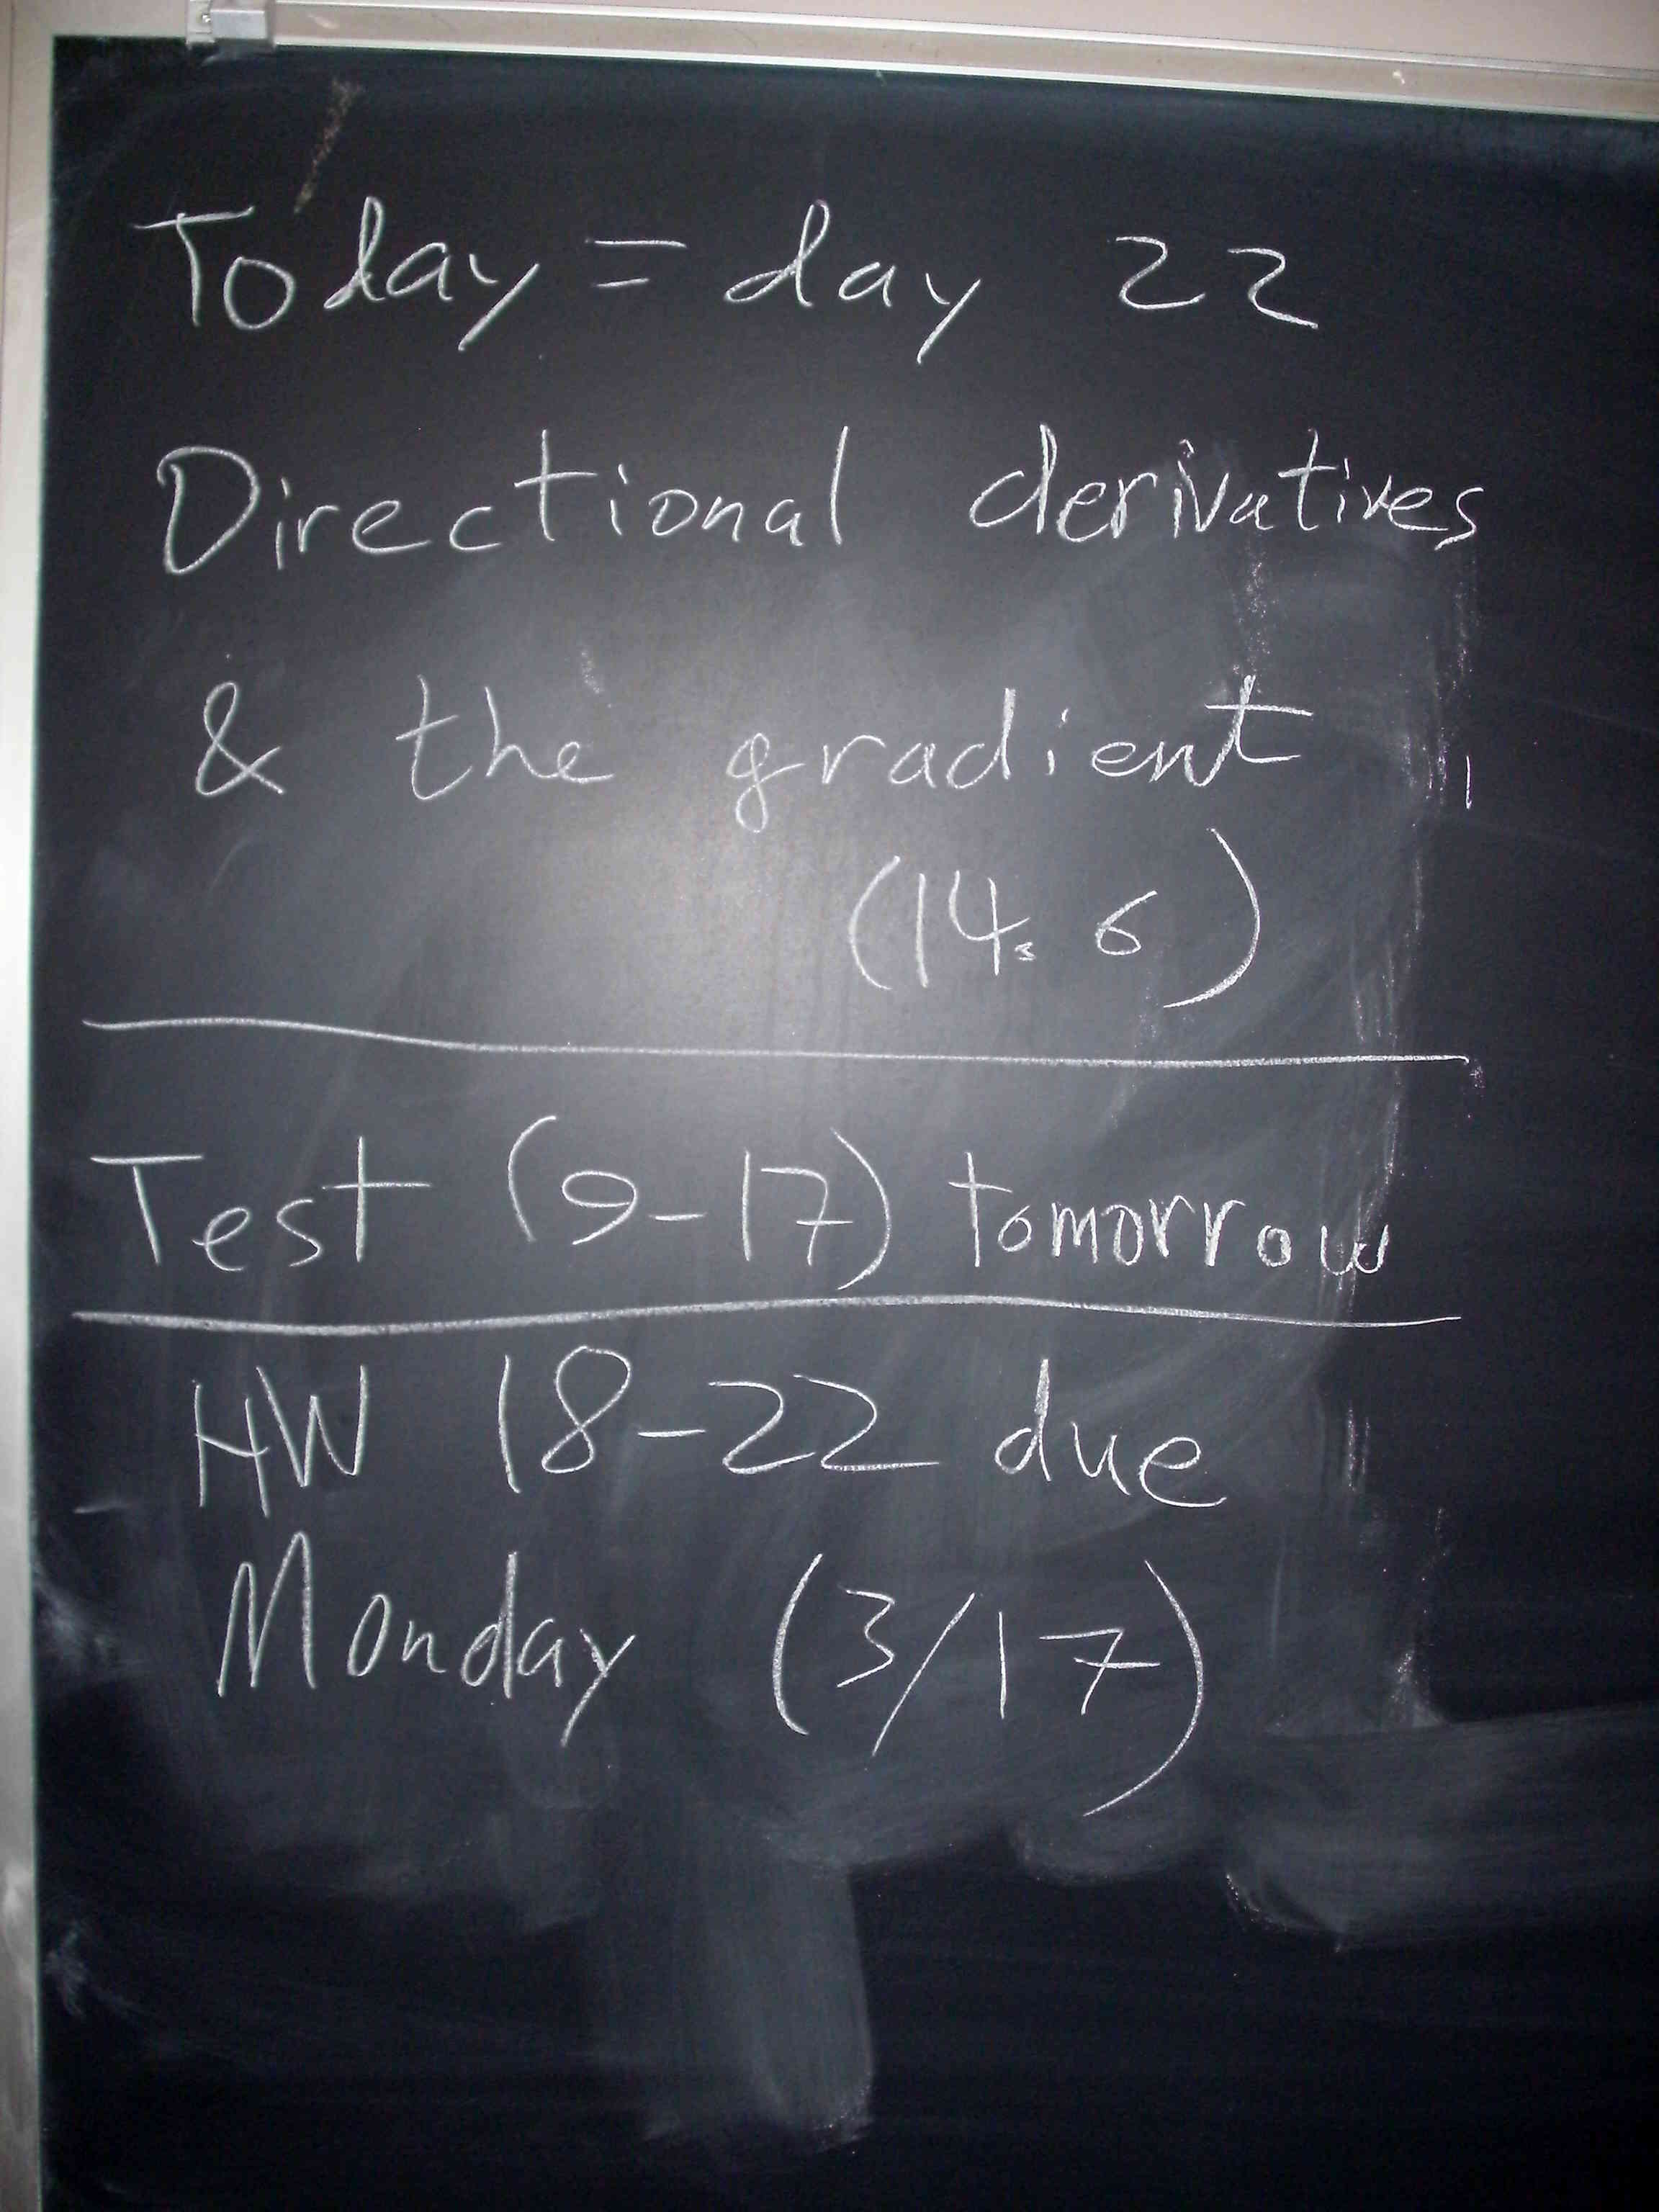 Today = day 22
Directional derivatives
& the gradient
(14.6)
Test (9-17) tomorrow
HW 18-22 due
Monday (3/17)